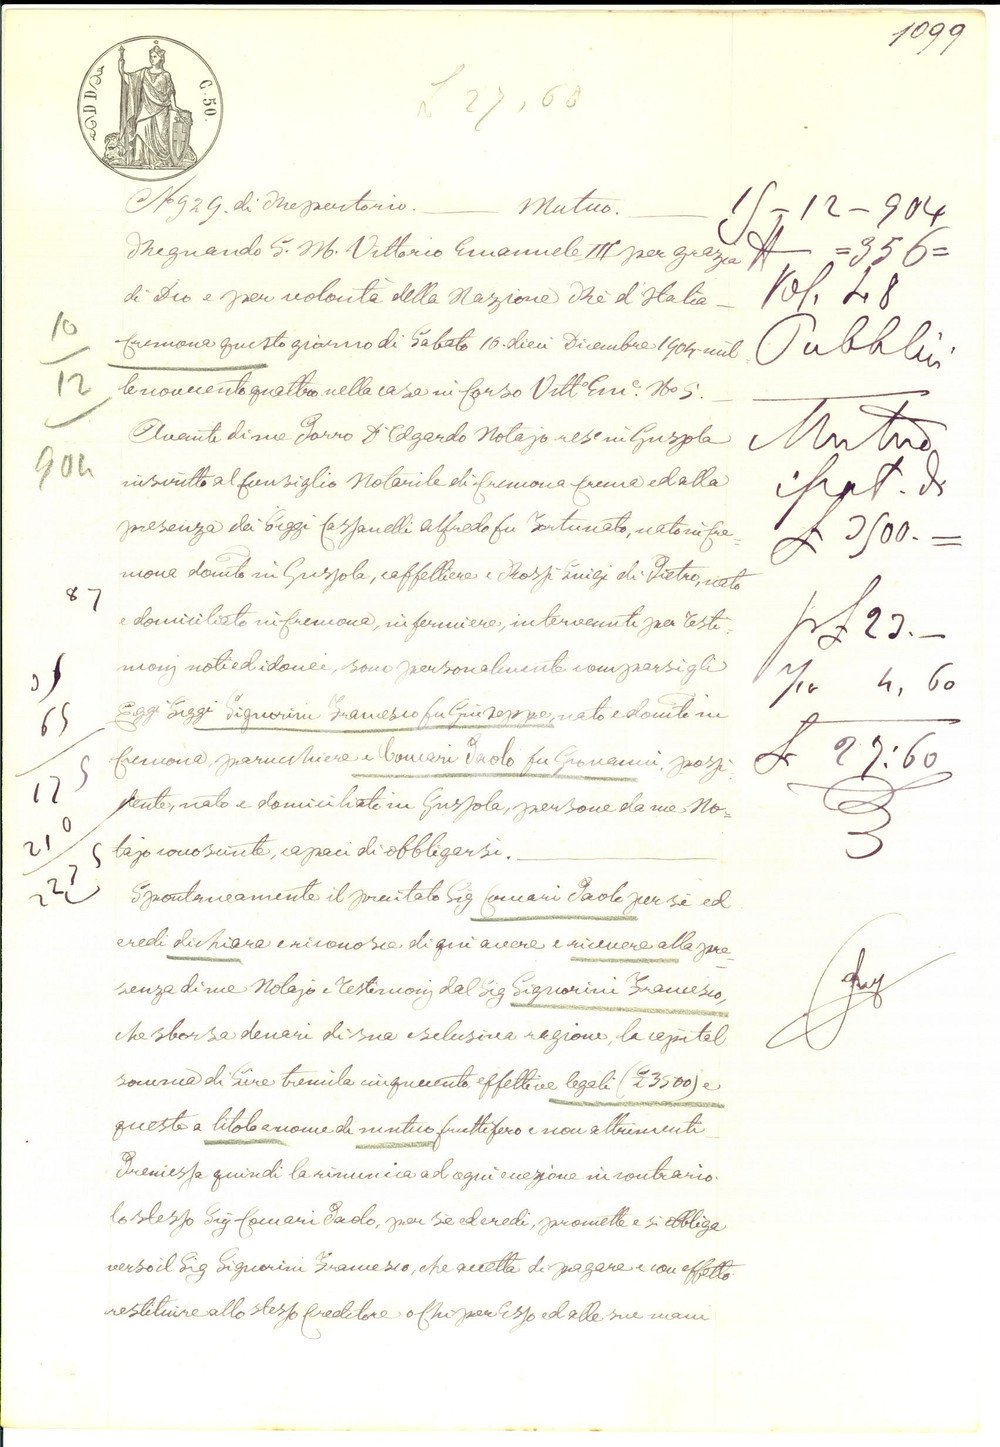 1099
C. 50.
£ 27,60
N° 929. di Repertorio. Mutuo.
Regnando S. M. Vittorio Emanuele III per grazia
di Dio e per volontà della Nazione Rè d'Italia
Cremona questo giorno di Sabato 10. dieci Dicembre 1904 mil
le novecento quattro nella casa in Corso Vitt° Em°. N° 5.
Avanti di me Porro D' Edgardo Notajo res.e in Gussola
inscritto al Consiglio Notarile di Cremona Crema ed alla
presenza dei Siggi Cassanelli Alfredo fu Fortunato, nato in Cre=
mona domto in Gussola, caffettiere e Rossi Luigi di Pietro, nato
e domiciliato in Cremona, infermiere, intervenuti per Testi=
monj noti ed idonei, sono personalmente comparsi gli
Siggi Signorini Francesco fu Giuseppe, nato e domto in
Cremona, parrucchiere e Comari Paolo fu Giovanni, possi=
dente, nato e domiciliato in Gussola, persone da me No=
tajo conosciute, capaci di obbligarsi.
Spontaneamente il prenotato Sig Comari Paolo per sè ed
eredi dichiara e riconosce di qui avere e ricevere alla pre=
senza di me Notajo e Testimonj dal Sig Signorini Francesco,
che sborsa denari di sua esclusiva ragione, la capital
somma di Lire tremila cinquecento effettive legali (£ 3500) e
questo a titolo e nome di mutuo fruttifero e non altrimenti
Premessa quindi la rinuncia ad ogni eccezione in contrario.
lo stesso Sig Comari Paolo, per sè ed eredi, promette e si obbliga
verso il Sig Signorini Francesco, che accetta di pagare e con effetto
restituire allo stesso Creditore o Chi per Esso ed alle sue mani
10
12
904
87
35
65
175
210
2275
15-12-904
N =356=
Vol. 48
Pubblici
Mutuo
£ 3500.=
£ 23.-
4,60
£ 27:60